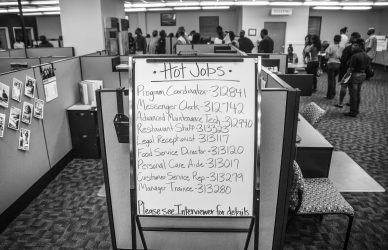 • Hot Jobs •
Program Coordinator-312841
Messenger Clerk-312742
Advanced Maintenance Tech-312940
Restaurant Staff-313323
Legal Receptionist-313117
Food Service Director-313120
Personal Care Aide-313017
Customer Service Rep-313279
Manager Trainee-313280
Please see Interviewer for details